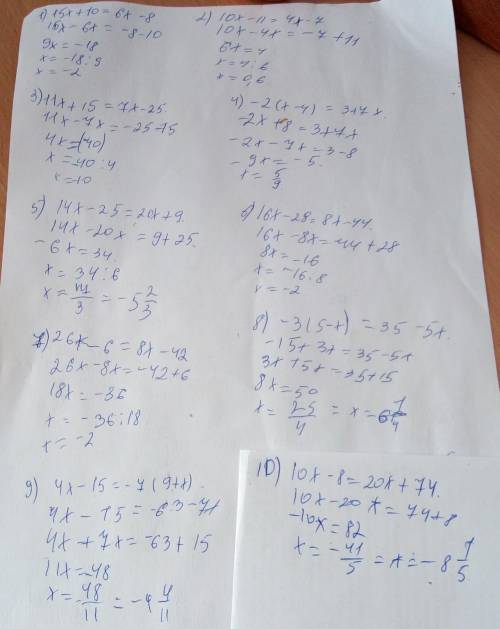 1) 15x+10 = 6x-8
15x-6x = -8-10
9x = -18
x = -18:9
x = -2
2) 10x-11 = 4x-7
10x-4x = -7+11
6x = 4
x = 4:6
x = 0,6
3) 11x+15 = 7x-25
11x-7x = -25-15
4x = (-40)
x = -40:4
x = -10
4) -2(x-4) = 3+7x
-2x+8 = 3+7x
-2x-7x = 3-8
-9x = -5
x = 5/9
5) 14x-25 = 20x+9
14x-20x = 9+25
-6x = 34
x = 34:6
x = -17/3 = -5 2/3
6) 16x-28 = 8x-44
16x-8x = -44+28
8x = -16
x = -16:8
x = -2
7) 26x-6 = 8x-42
26x-8x = -42+6
18x = -36
x = -36:18
x = -2
8) -3(5-x) = 35-5x
-15+3x = 35-5x
3x+5x = 35+15
8x = 50
x = 25/4 = x = 6 1/4
9) 4x-15 = -7(9+x)
4x-15 = -63-7x
4x+7x = -63+15
11x = -48
x = -48/11 = -4 4/11
10) 10x-8 = 20x+74
10x-20x = 74+8
-10x = 82
x = -41/5 = x = -8 1/5